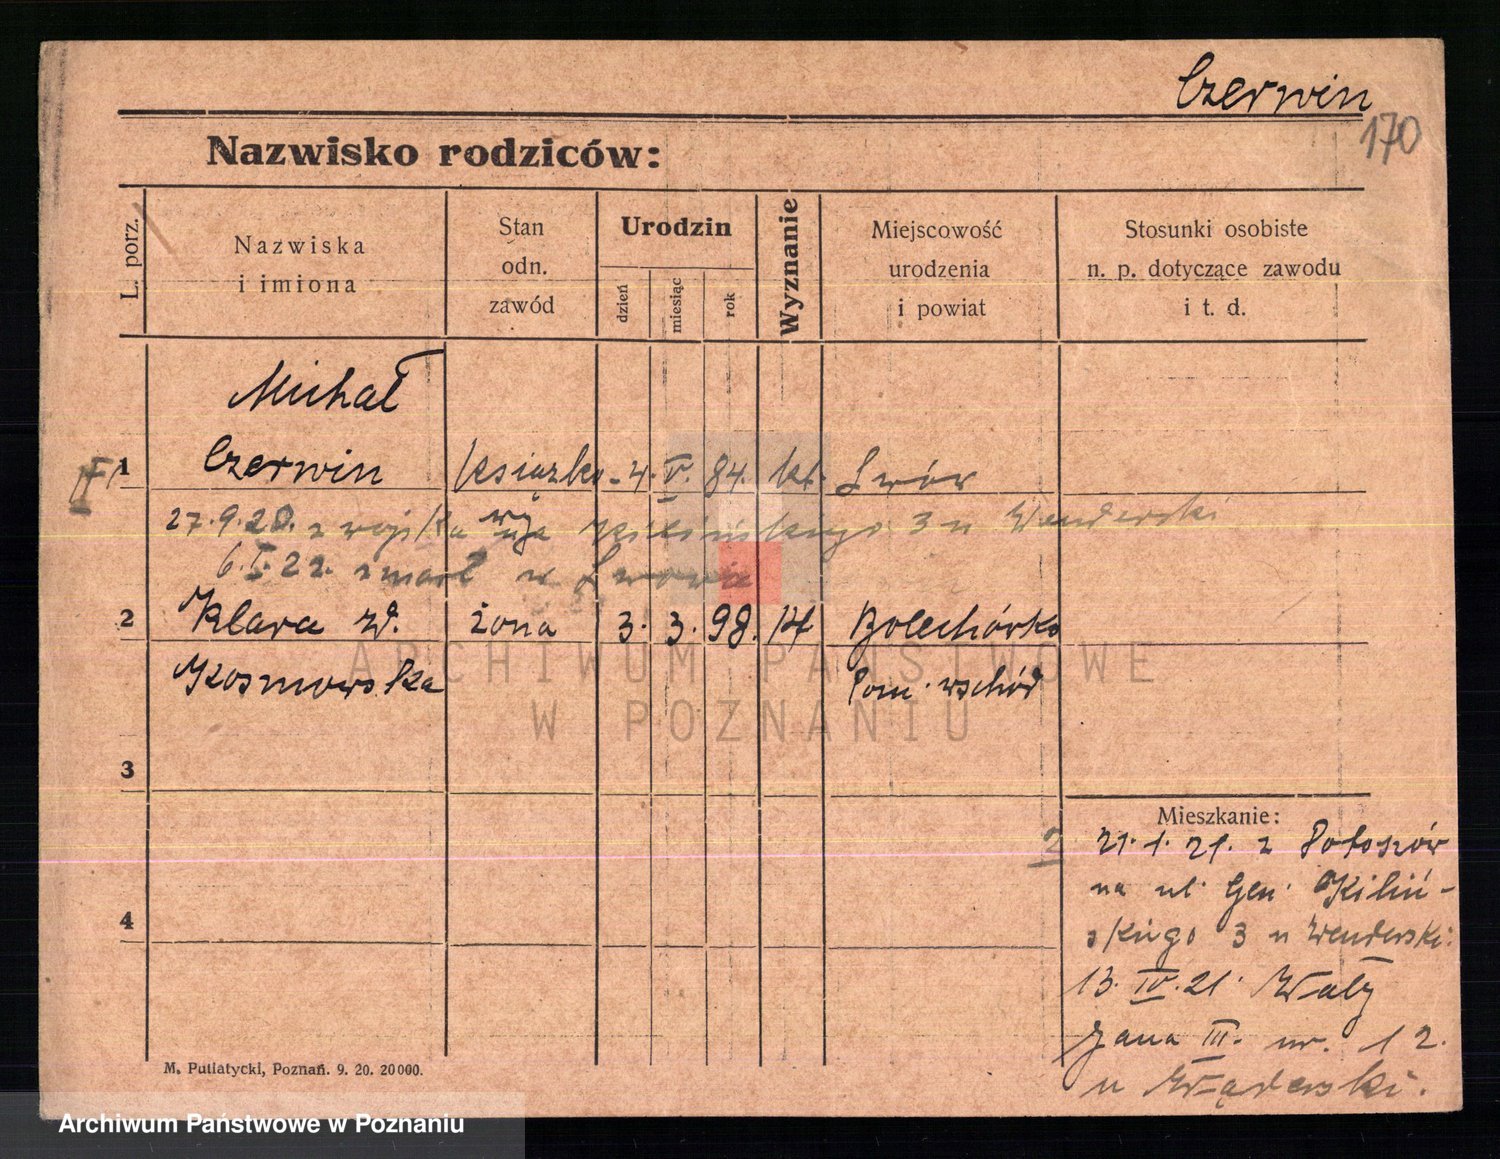 Czerwin
170
Nazwisko rodziców:
L. porz.
Nazwiska
i imiona
Stan
odn.
zawód
Urodzin
dzień
miesiąc
rok
Wyznanie
Miejscowość
urodzenia
i powiat
Stosunki osobiste
n. p. dotyczące zawodu
i t. d.
Michał
1 Czerwin książko- 4. V. 84. kt. Lwów
27.9.20. z wojska na Kilińskiego 3 u Wenderski
6.I.22. zmarł w Lwowie
2 Klara zd. żona 3. 3. 98. kt Bolechówko
Kosmowska Pozn. wschód
3
4
Mieszkanie:
2 21.1.21. z
na ul. Gen. Kiliń-
skiego 3 u Wenderski.
13. IV. 21. Wały
Jana III. nr. 12.
u
M. Putiatycki, Poznań. 9. 20. 20000.
ARCHIWUM PAŃSTWOWE
W POZNANIU
Archiwum Państwowe w Poznaniu